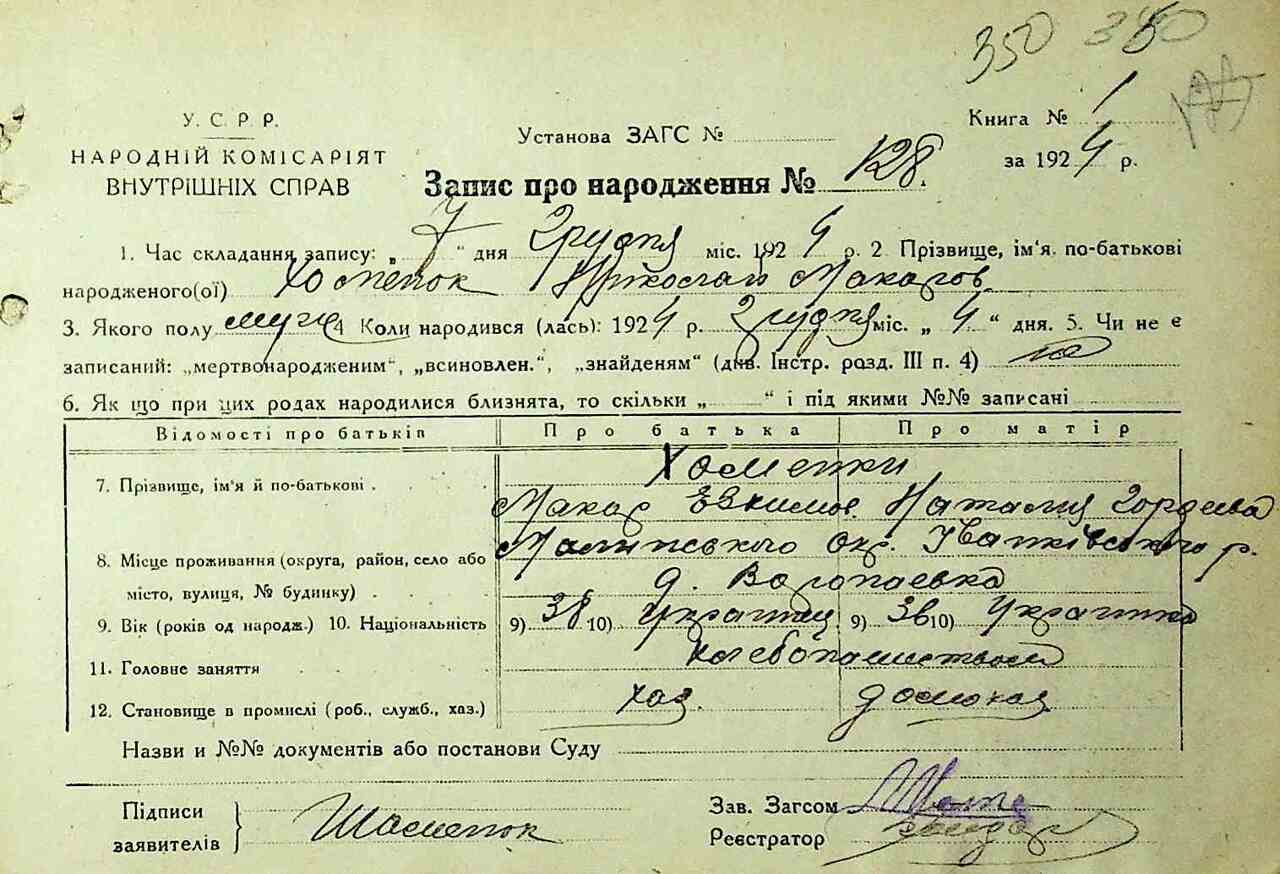 350 350
У. С. Р. Р.
НАРОДНІЙ КОМІСАРІЯТ
ВНУТРІШНІХ СПРАВ
Установа ЗАГС №
Книга № 1
за 1924 р.
Запис про народження № 128.
1. Час складання запису: „7“ дня Грудня міс. 1924 р. 2. Прізвище, ім'я, по-батькові
народженого(ої) Хоменок Николай Макаров
3. Якого полу муж 4 Коли народився (лась): 1924 р. Грудня міс. „4“ дня. 5. Чи не є
записаний: „мертвонародженим“, „всиновлен.“, „знайденям“ (див. Інстр. розд. III п. 4) не
6. Як що при цих родах народилися близнята, то скільки „ “ і під якими №№ записані
Відомості про батьків Про батька Про матір
7. Прізвище, ім'я й по-батькові . Хоменки
Макар Евхимов. Наталия Гордеева
8. Місце проживання (округа, район, село або Малинського окр. Іванківського р.
місто, вулиця, № будинку) . . д. Воропаевка
9. Вік (років од народж.) 10. Національність 9) 38 10) Украинец 9) 38 10) Украинка
11. Головне заняття . . . хлебопашеством
12. Становище в промислі (роб., служб., хаз.) хаз. домохаз
Назви и №№ документів або постанови Суду
Підписи
заявителів
Шоменок
Зав. Загсом
Реєстратор